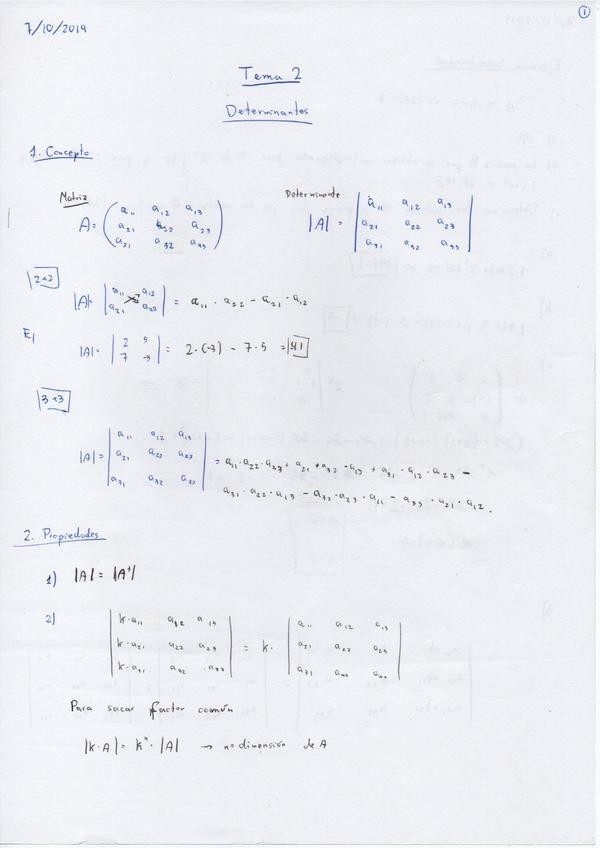 7/10/2019
1
Tema 2
Determinantes
1. Concepto
Matriz
Determinante
A = ( a11 a12 a13
a21 a22 a23
a31 a32 a33 )
|A| = | a11 a12 a13
a21 a22 a23
a31 a32 a33 |
2x2
|A| = | a11 a12
a21 a22 | = a11 · a22 - a21 · a12
Ej
|A| = | 2 5
7 -3 | = 2·(-3) - 7·5 =
3x3
|A| = | a11 a12 a13
a21 a22 a23
a31 a32 a33 | = a11·a22·a33 + a21·a32·a13 + a31·a12·a23 -
a31·a22·a13 - a32·a23·a11 - a33·a21·a12.
2. Propiedades
1) |A| = |A^t|
2) | k·a11 a12 a13
k·a21 a22 a23
k·a31 a32 a33 | = k· | a11 a12 a13
a21 a22 a23
a31 a32 a33 |
Para sacar factor común
|k·A| = k^n · |A| → n = dimensión de A